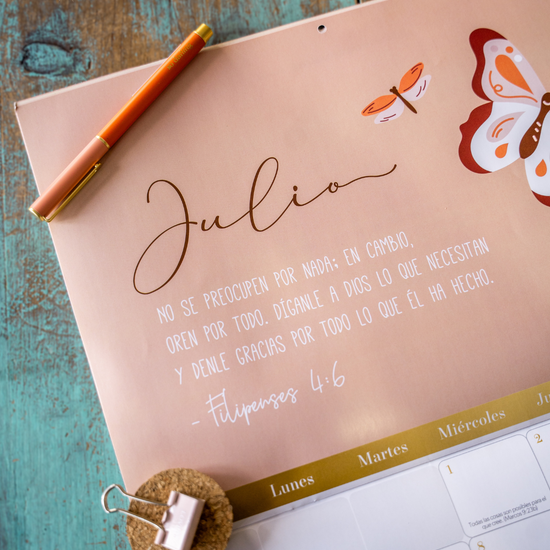 Julio
NO SE PREOCUPEN POR NADA; EN CAMBIO,
OREN POR TODO. DÍGANLE A DIOS LO QUE NECESITAN
Y DENLE GRACIAS POR TODO LO QUE ÉL HA HECHO.
- Filipenses 4:6
Lunes Martes Miércoles Ju
1 2
Todas las cosas son posibles para el
que cree. (Marcos 9: 23b)
8